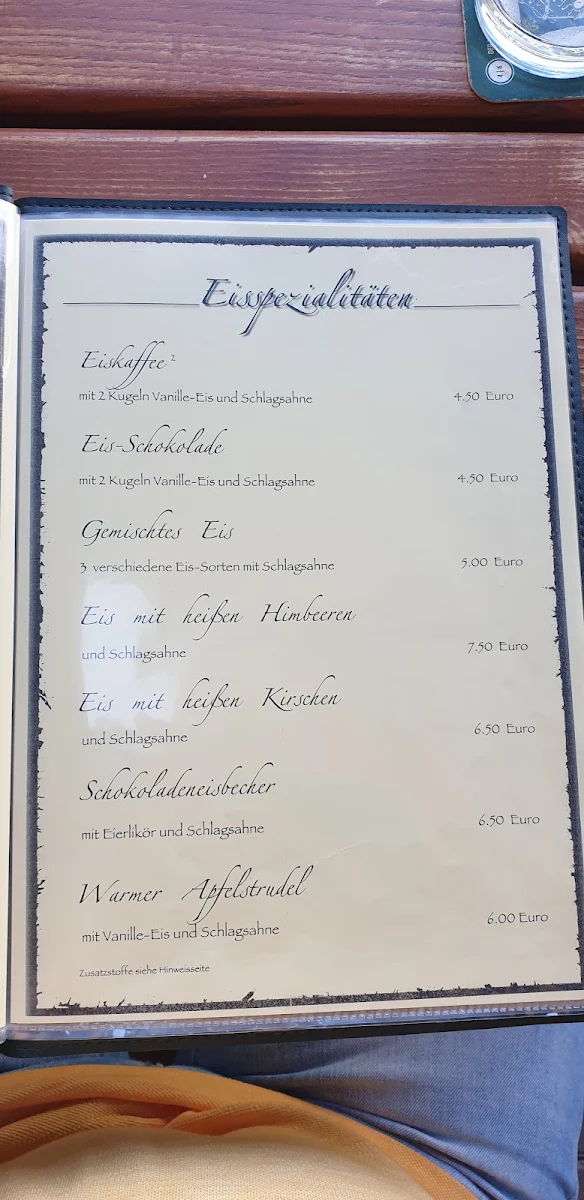 Eisspezialitäten
Eiskaffee ²
mit 2 Kugeln Vanille-Eis und Schlagsahne 4.50 Euro
Eis-Schokolade
mit 2 Kugeln Vanille-Eis und Schlagsahne 4.50 Euro
Gemischtes Eis
3 verschiedene Eis-Sorten mit Schlagsahne 5.00 Euro
Eis mit heißen Himbeeren
und Schlagsahne 7.50 Euro
Eis mit heißen Kirschen
und Schlagsahne 6.50 Euro
Schokoladeneisbecher
mit Eierlikör und Schlagsahne 6.50 Euro
Warmer Apfelstrudel
mit Vanille-Eis und Schlagsahne 6.00 Euro
Zusatzstoffe siehe Hinweisseite